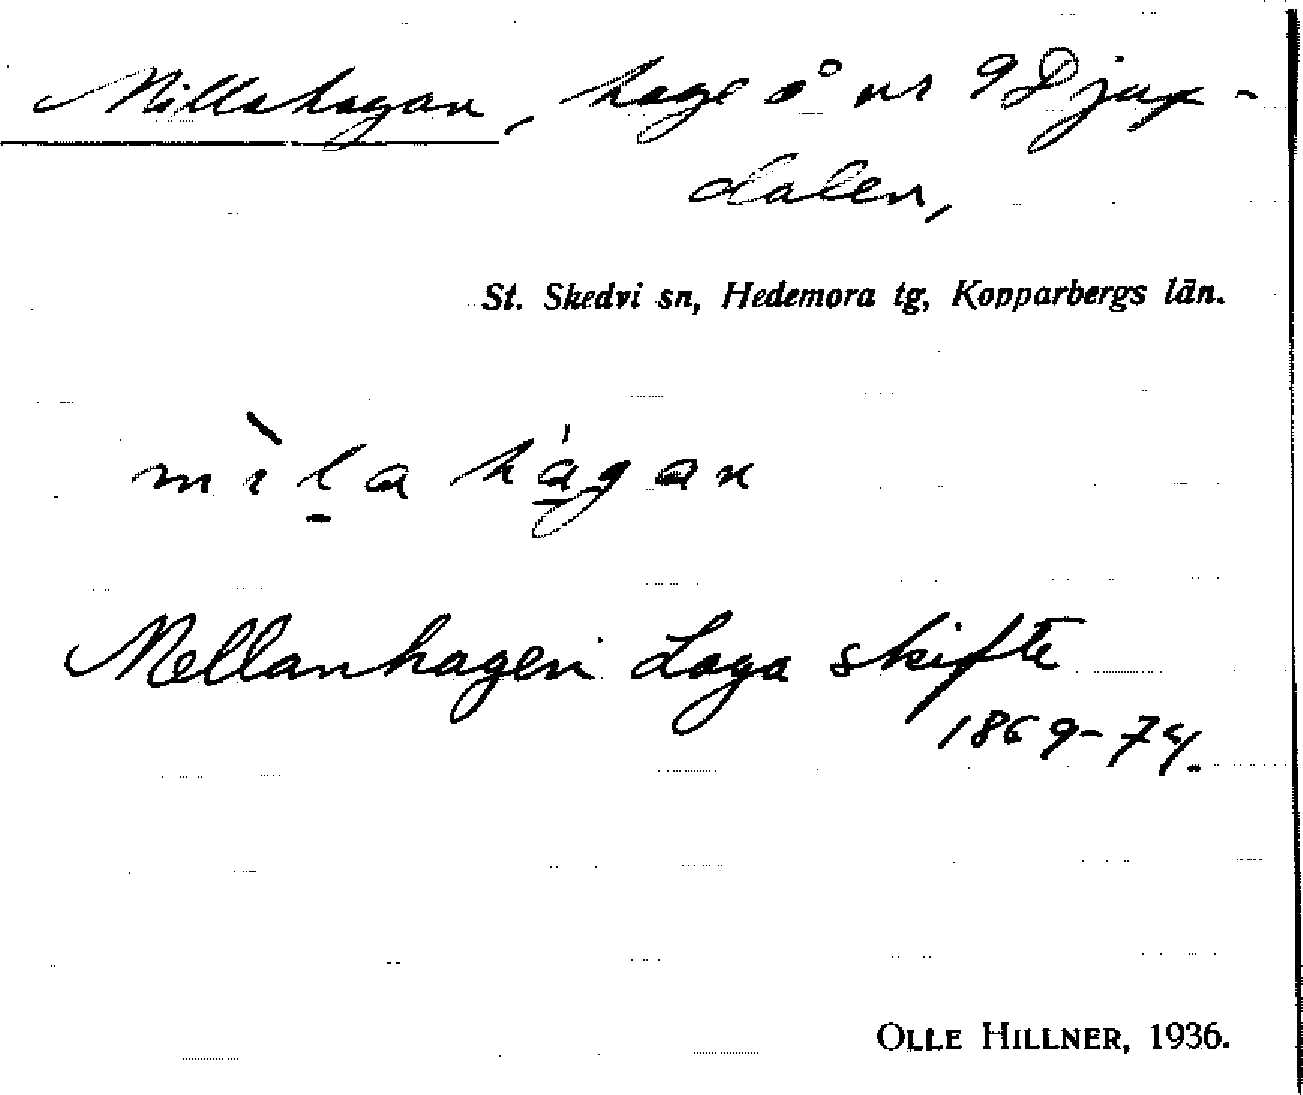 Millahagan, hage å nr 9 Djup-
dalen,
St. Skedvi sn, Hedemora tg, Kopparbergs län.
mìl̠a há̠gan
Mellanhagen Laga skifte
1869-74.
OLLE HILLNER, 1936.